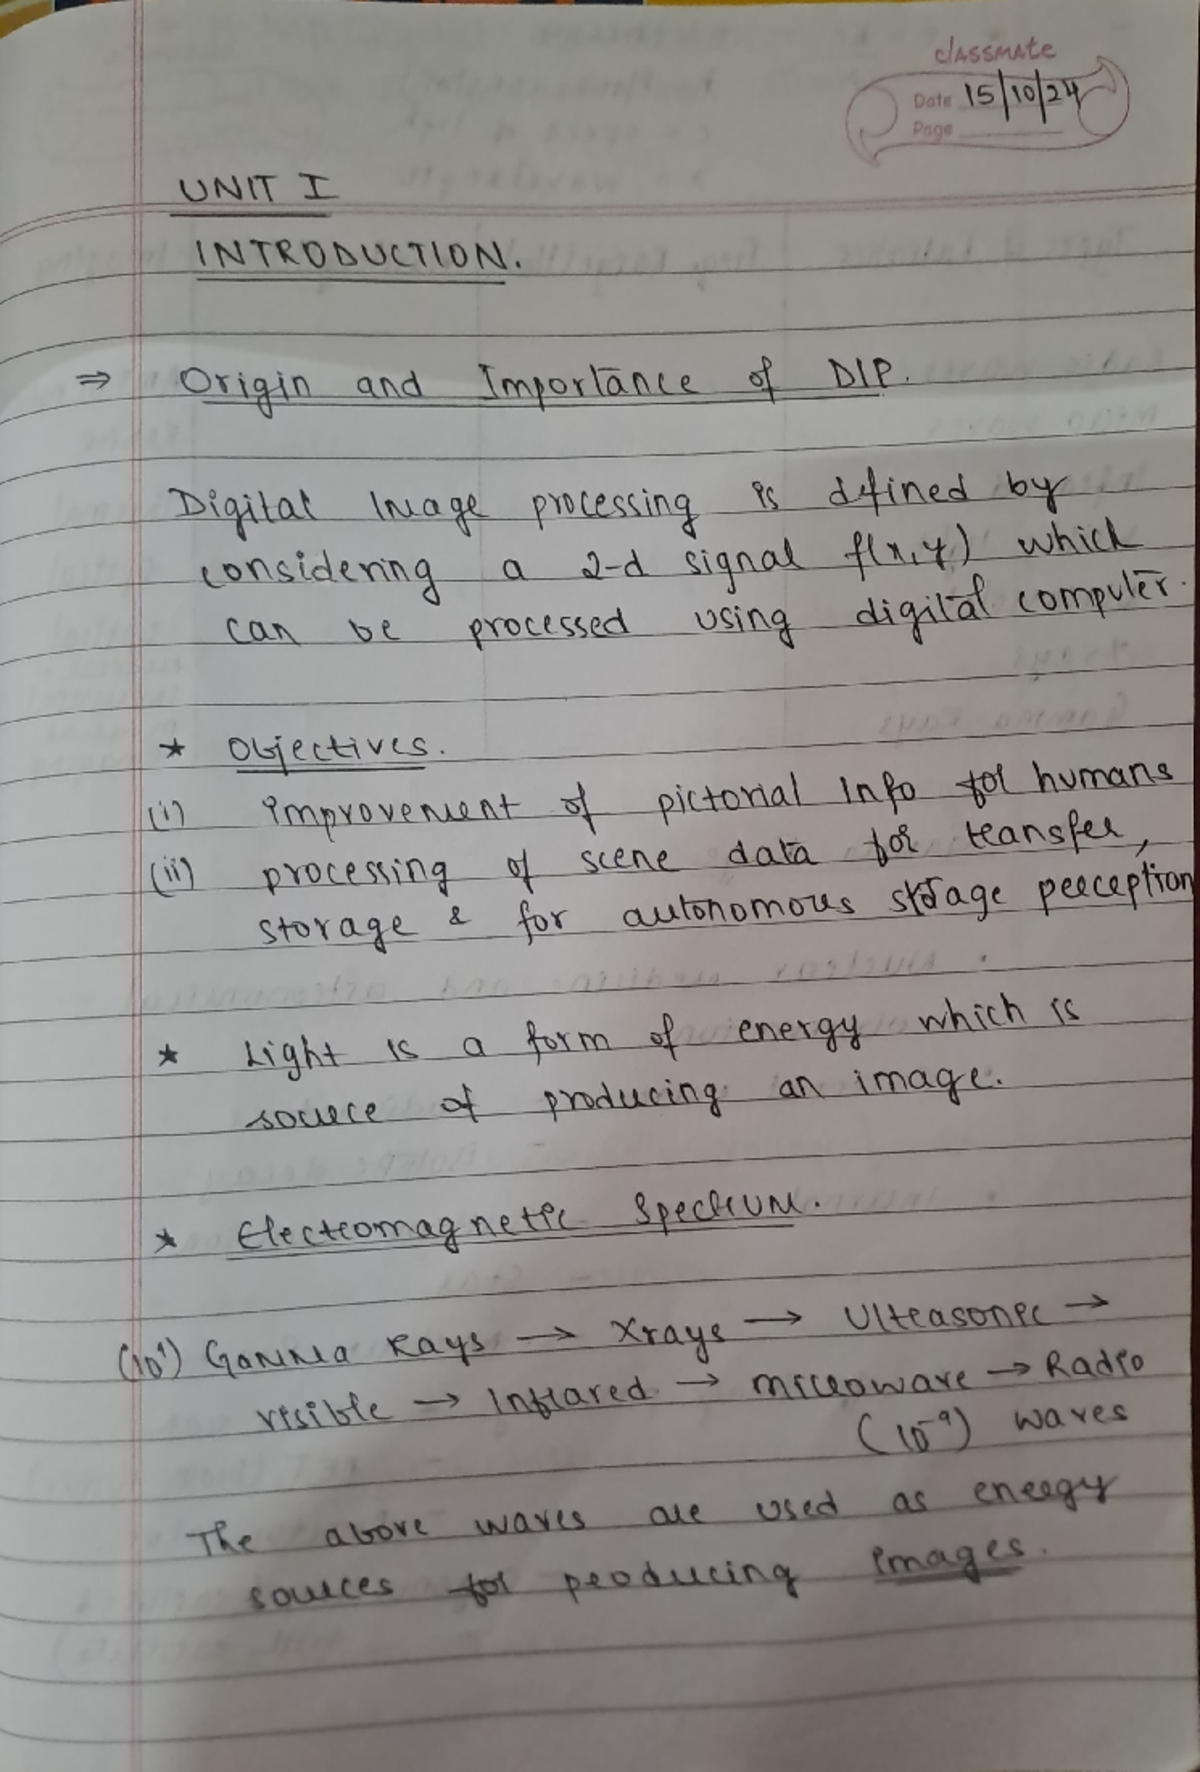 classmate
Date 15/10/24
Page
UNIT I
INTRODUCTION.
⇒ Origin and Importance of DIP.
Digital Image processing is defined by
considering a 2-d signal f(x,y) which
can be processed using digital computer.
* Objectives.
(i) improvement of pictorial Info for humans
(ii) processing of scene data for transfer,
storage & for autonomous storage perception
* Light is a form of energy which is
source of producing an image.
* Electromagnetic Spectrum.
Gamma Rays → Xrays → Ultrasonic →
visible → Infrared → microwave → Radio
(10⁻⁹) waves
The above waves are used as energy
sources for producing images.